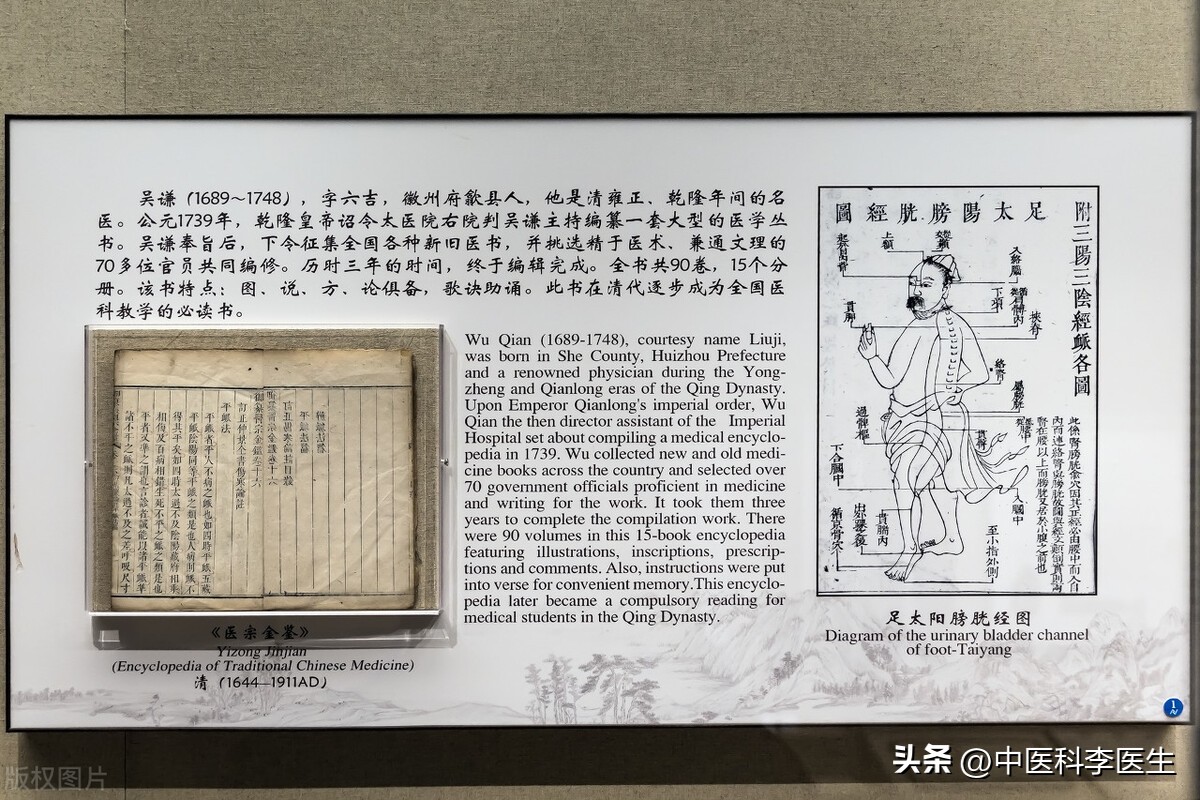 吴谦（1689～1748），字六吉，徽州府歙县人，他是清雍正、乾隆年间的名
医。公元1739年，乾隆皇帝诏令太医院右院判吴谦主持编纂一套大型的医学丛
书。吴谦奉旨后，下令征集全国各种新旧医书，并挑选精于医术、兼通文理的
70多位官员共同编修。历时三年的时间，终于编辑完成。全书共90卷，15个分
册。该书特点：图、说、方、论俱备，歌诀助诵。此书在清代逐步成为全国医
科教学的必读书。
Wu Qian (1689-1748), courtesy name Liuji,
was born in She County, Huizhou Prefecture
and a renowned physician during the Yong-
zheng and Qianlong eras of the Qing Dynasty.
Upon Emperor Qianlong's imperial order, Wu
Qian the then director assistant of the Imperial
Hospital set about compiling a medical encyclo-
pedia in 1739. Wu collected new and old medi-
cine books across the country and selected over
70 government officials proficient in medicine
and writing for the work. It took them three
years to complete the compilation work. There
were 90 volumes in this 15-book encyclopedia
featuring illustrations, inscriptions, prescrip-
tions and comments. Also, instructions were put
into verse for convenient memory.This encyclo-
pedia later became a compulsory reading for
medical students in the Qing Dynasty.
平脈法
平脈者平人不病之脈也如四時平脈五臟
平脈陰陽同等平脈之類是也人病則脈不
《医宗金鉴》
Yizong Jinjian
(Encyclopedia of Traditional Chinese Medicine)
清（1644—1911AD）
附三陽三陰經脈各圖
足太陽膀胱經圖
上額
入絡腦
下項
挾脊
絡腎
屬膀胱
貫臀
入膕中
貫胛
過髀樞
下合膕中
貫腨內
出外踝之後
循京骨
至小指外側
足太阳膀胱经图
Diagram of the urinary bladder channel
of foot-Taiyang
1
版权图片
头条 @中医科李医生